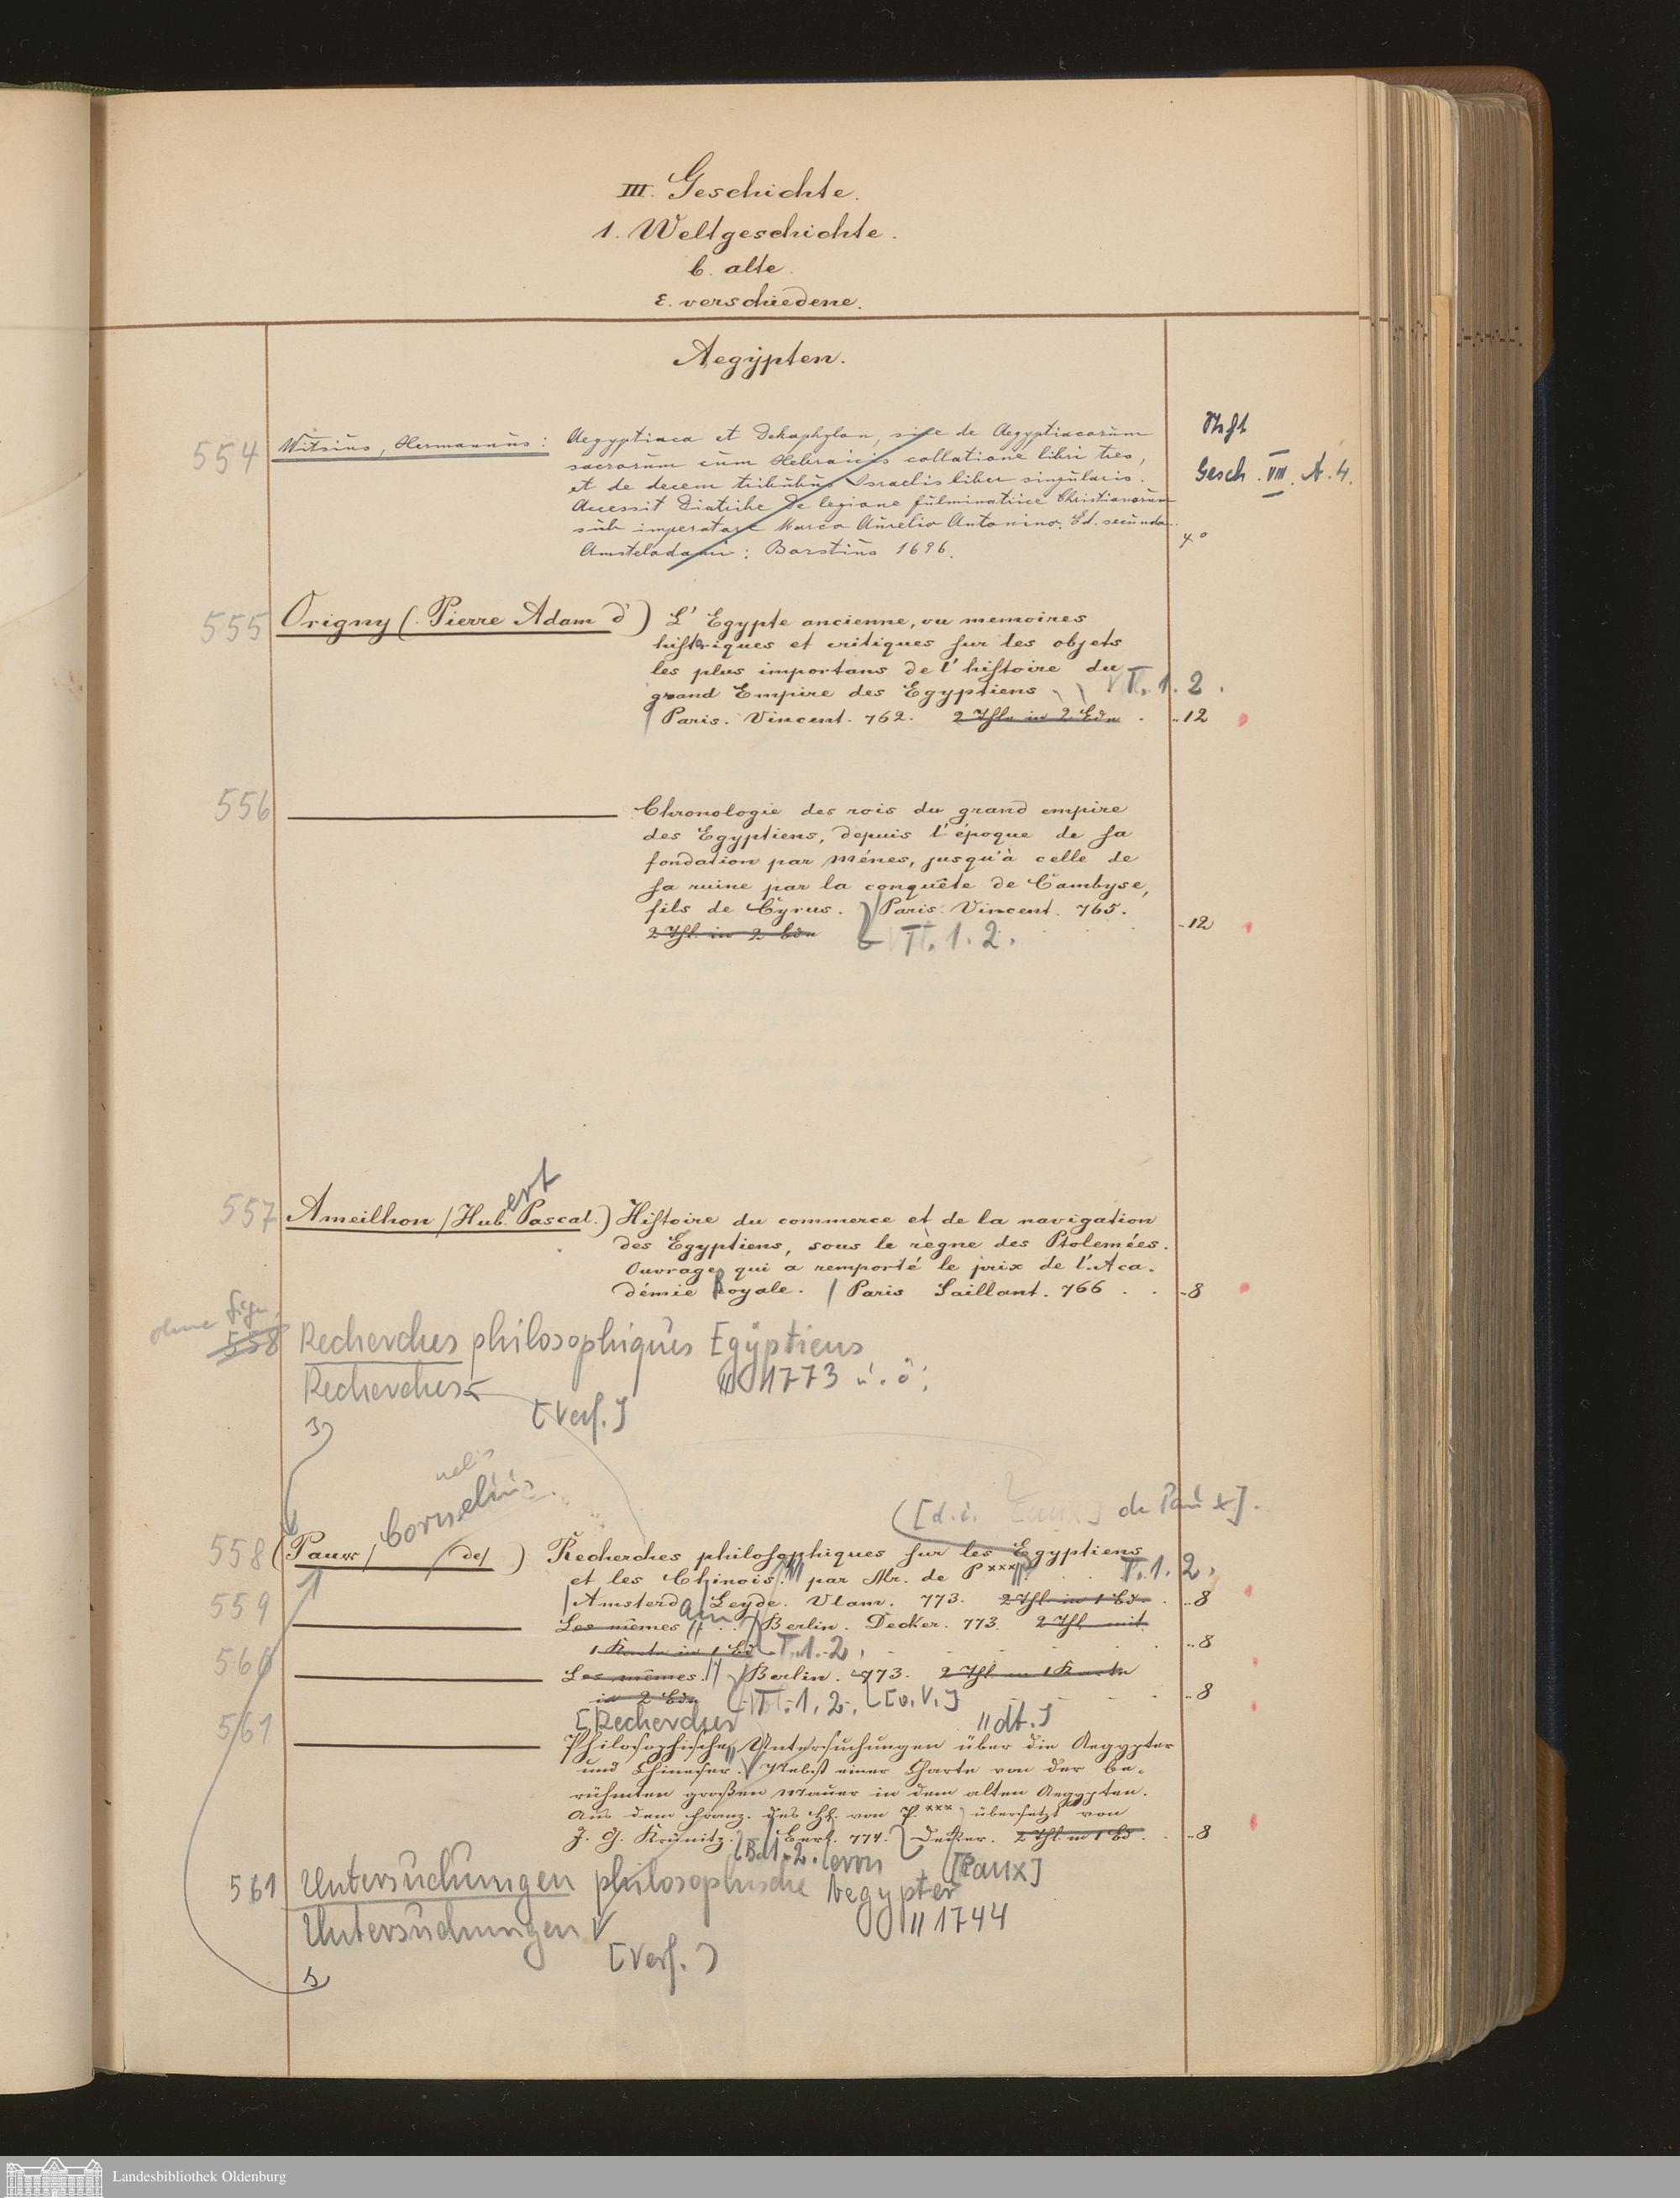 III. Geschichte.
1. Weltgeschichte.
b. alte.
ε. verschiedene.
Aegypten.
554 Witsius, Hermannus: Aegyptiaca et Dekaphylon, sive de Aegyptiacorum
sacrorum cum Hebraicis collatione libri tres,
et de decem tribubus Israelis liber singularis.
Accessit Diatribe de legione fulminatrice Christianorum
sub imperatore Marco Aurelio Antonino. Ed. secunda.
Amstelodami: Borstius 1696.
4°
Gesch. VIII. A. 4.
555 Origny (Pierre Adam d') L'Egypte ancienne, ou memoires
historiques et critiques sur les objets
les plus importans de l'histoire du
grand Empire des Egyptiens T. 1. 2.
Paris. Vincent. 762. 2 Thle in 2 Bdn . ..12
556 Chronologie des rois du grand empire
des Egyptiens, depuis l'époque de sa
fondation par Ménes, jusqu'à celle de
sa ruine par la conquête de Cambyse,
fils de Cyrus. Paris. Vincent. 765.
2 Thl. in 2 Bdn T. 1. 2. ..12
557 Ameilhon (Hubert Pascal.) Histoire du commerce et de la navigation
des Egyptiens, sous le règne des Ptolemées.
Ouvrage qui a remporté le prix de l'Aca-
démie Royale. / Paris Saillant. 766 . . ..8
ohne Sign.
558 Recherches philosophiques Egyptiens
Recherches 1773 u. ö.
[Verf.]
s
nelis
Cornelius
[d. i. de Paux].
558 (Pauw / de/ ) Recherches philosophiques sur les Egyptiens
et les Chinois. par Mr. de P*** T. 1. 2.
559 Amsterdam Leyde. Vlam. 773. 2 Thl. in 1 Bd. . ..8
Les mêmes. Berlin. Decker. 773. 2 Thl. mit
560 1 Karte in 1 Bd T. 1. 2. ..8
Les mêmes. Berlin. 773. 2 Thl. m 1 Karte
in 2 Bdn T. 1. 2. [o. V.] ..8
561 [Recherches dt.]
Philosophische Untersuchungen über die Aegypter
und Chineser. Nebst einer Charte von der be-
rühmten großen Mauer in dem alten Aegypten.
Aus dem Franz. des H. von P.*** übersetzt von
J. G. Krünitz. Berl. 774. Decker. 2 Thl. in 1 Bd. . ..8
Bd. 1. 2. [Paux]
561 Untersuchungen philosophische Aegypter
Untersuchungen 1744
[Verf.]
s
Landesbibliothek Oldenburg